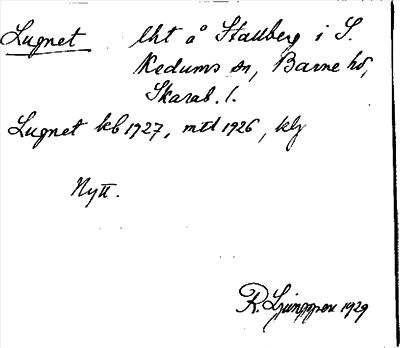 Lugnet lht å Stallberg i S.
Kedums sn, Barne hd,
Skarab. l.
Lugnet kb 1927, mtl 1926, klj
Nytt.
R. Ljunggren 1929